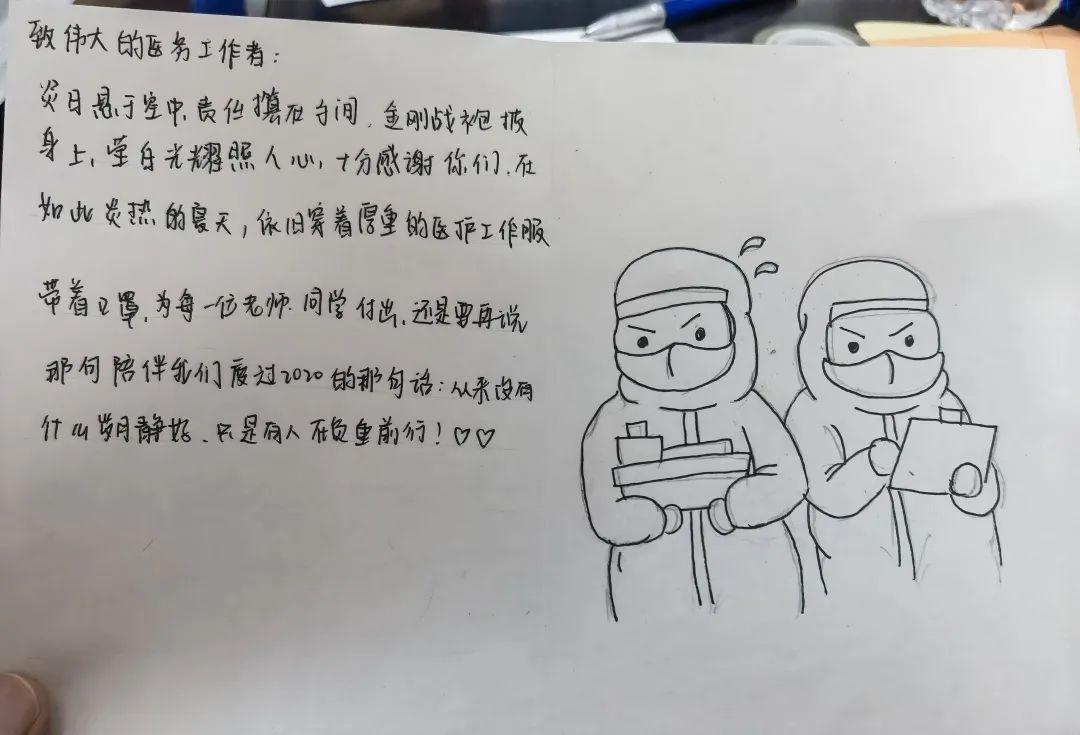 致伟大的医务工作者：
炎日悬于空中，责任摸在手间，金刚战袍披
身上，莹白光耀照人心，十分感谢你们，在
如此炎热的夏天，依旧穿着厚重的医护工作服
带着口罩，为每一位老师、同学付出，还是要再说
那句陪伴我们度过2020的那句话：从来没有
什么岁月静好、只是有人在负重前行！♡♡